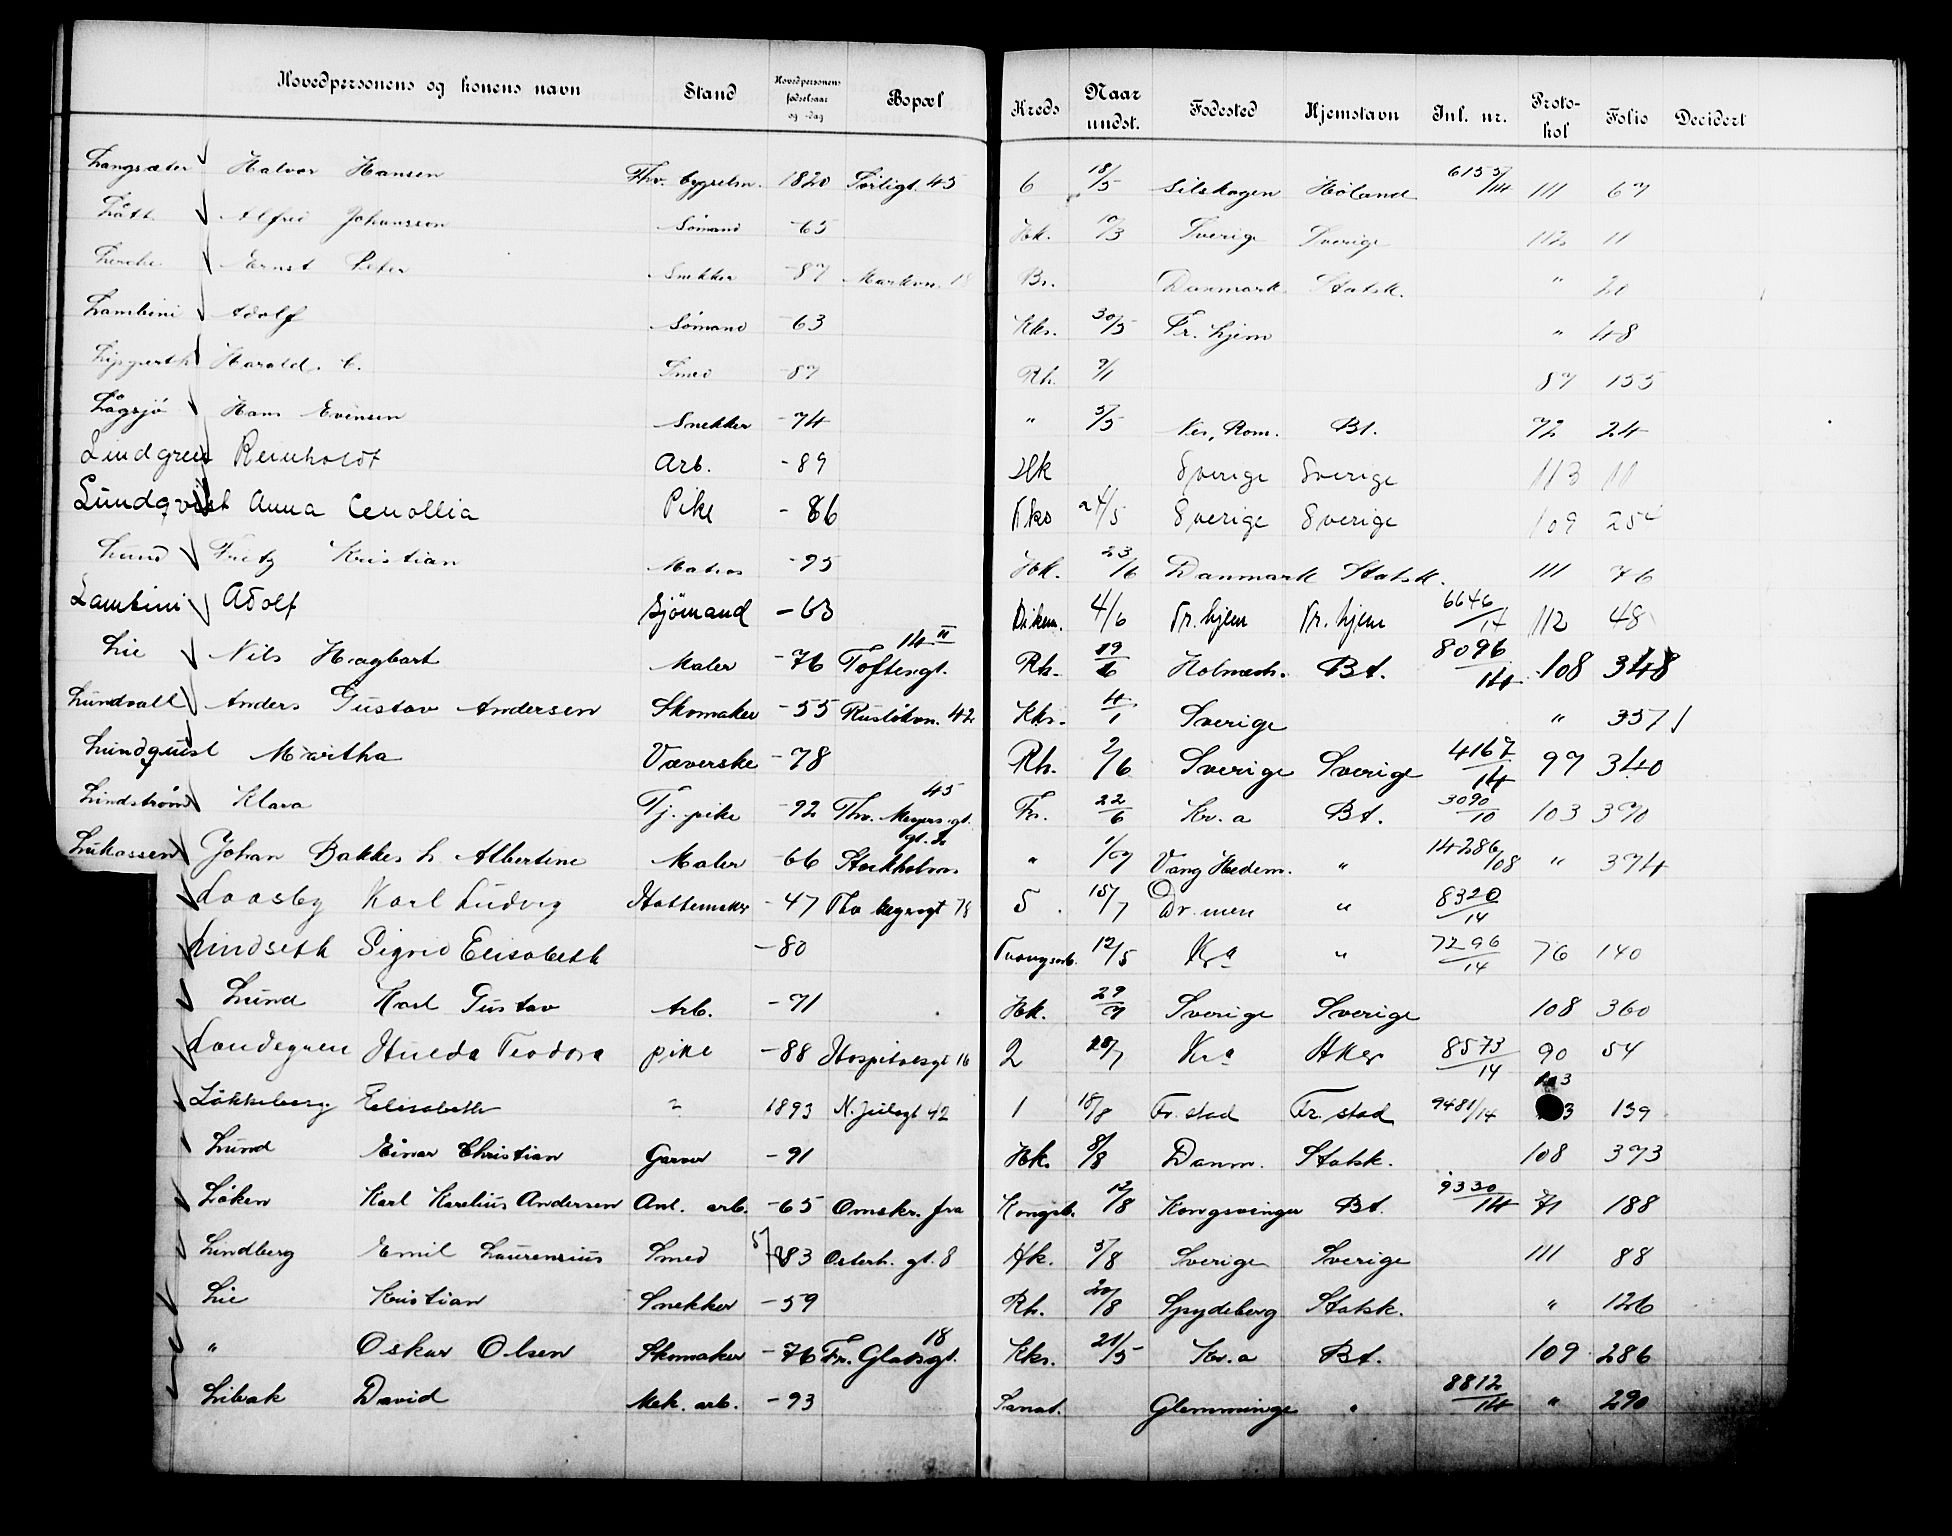 Hovedpersonens og konens navn Stand Hovedpersonens fødselsaar og -dag Bopæl Kreds Naar undst. Fødested Hjemstavn Inl. nr. Protokol Folio Decidert
Langsæter Halvor Hansen 1820 Sørligt. 45 6 18/5 Høland 6155/14 111 67
Lått Alfred Johansson Sømand -65 Hk. 10/3 Sverige Sverige 112 11
Lerche Ernst Peter Snekker -87 Markvn. 18 Br. Danmark Statsk. " 20
Lambini Adolf Sømand -63 Kks. 30/5 Fr. hjem " 48
Harald. C. Smed -87 Rh. 9/1 87 155
Lågsjø Hans Evensen Snekker -74 " 5/5 Nes, Rom. Bt. 72 24
Lindgren Reinholdt Arb. -89 Hk Sverige Sverige 113 11
Lundqvist Anna Pike -86 Kks 24/5 Sverige Sverige 109 254
Lund Fritz Kristian Matros -95 Hk. 23/6 Danmark Statsk. 111 76
Lambini Adolf Sjömand -63 Dikem. 4/6 Fr. hjem Fr. hjem 6646/14 112 48
Lie Nils Hagbart Maler -76 Toftesgt. 14 II Rh. 19/6 Holmestr. Bt. 8096/14 108 348
Lundvall Anders Gustav Andersen Skomaker -55 Rusløkvn. 42 Kks. 4/1 Sverige " 357
Lundquist Märtha Væverske -78 Rh. 2/6 Sverige Sverige 4167/14 97 340
Lindstrøm Klara Tj. pike -92 Thv. Meyers gt. 45 Fr. 22/6 Kr.a Bt. 3090/10 103 390
Lukassen Johan Bakkes h. Albertine Maler -66 Stockholms gt. 2 " 1/07 Vang Hedem. " 14286/08 " 394
Laasby Karl Ludvig Hattemaker -47 5 15/7 Dr.men " 8320/14
Lindseth Sigrid Elisabeth -80 Tvangsarb. 12/5 Kra " 7296/14 76 140
Lund Karl Gustav Arb. -71 Hk. 29/7 Sverige Sverige 108 360
Landegren Hulda Teodora pike -88 Hospitalsgt 16 2 28/7 Kra Aker 8573/14 90 54
Løkkeberg Elisabeth " 1893 N. Juelsgt 42 1 18/8 Fr. stad Fr. stad 9481/14 103 139
Lund Einar Christian Garver -91 Hk. 8/8 Danm. Statsk. 108 393
Løken Karl Karelius Andersen Anl. arb. -65 Omskr. fra Kongsb. 12/8 Kongsvinger Bt. 9330/14 71 188
Lindberg Emil Laurensius Smed 5/7 83 Osterh. gt. 8 Hk. 5/8 Sverige Sverige 111 88
Lie Kristian Snekker -59 Rh. 20/8 Spydeberg Statsk. " 126
" Oskar Olsen Skomaker -76 Fr. Gladsgt. 18 Kks. 21/5 Kr.a Bt. 109 286
Libak David Mek. arb. -93 Sanat. Glemminge " 8812/14 " 290